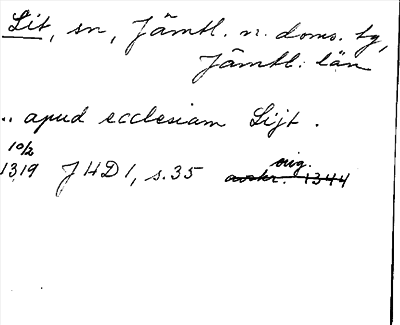 Lit, sn, Jämtl. n. doms. tg,
Jämtl: län
.. apud ecclesiam Lijt.
10/2
1319 JHD 1, s. 35 orig.
avskr. 1344